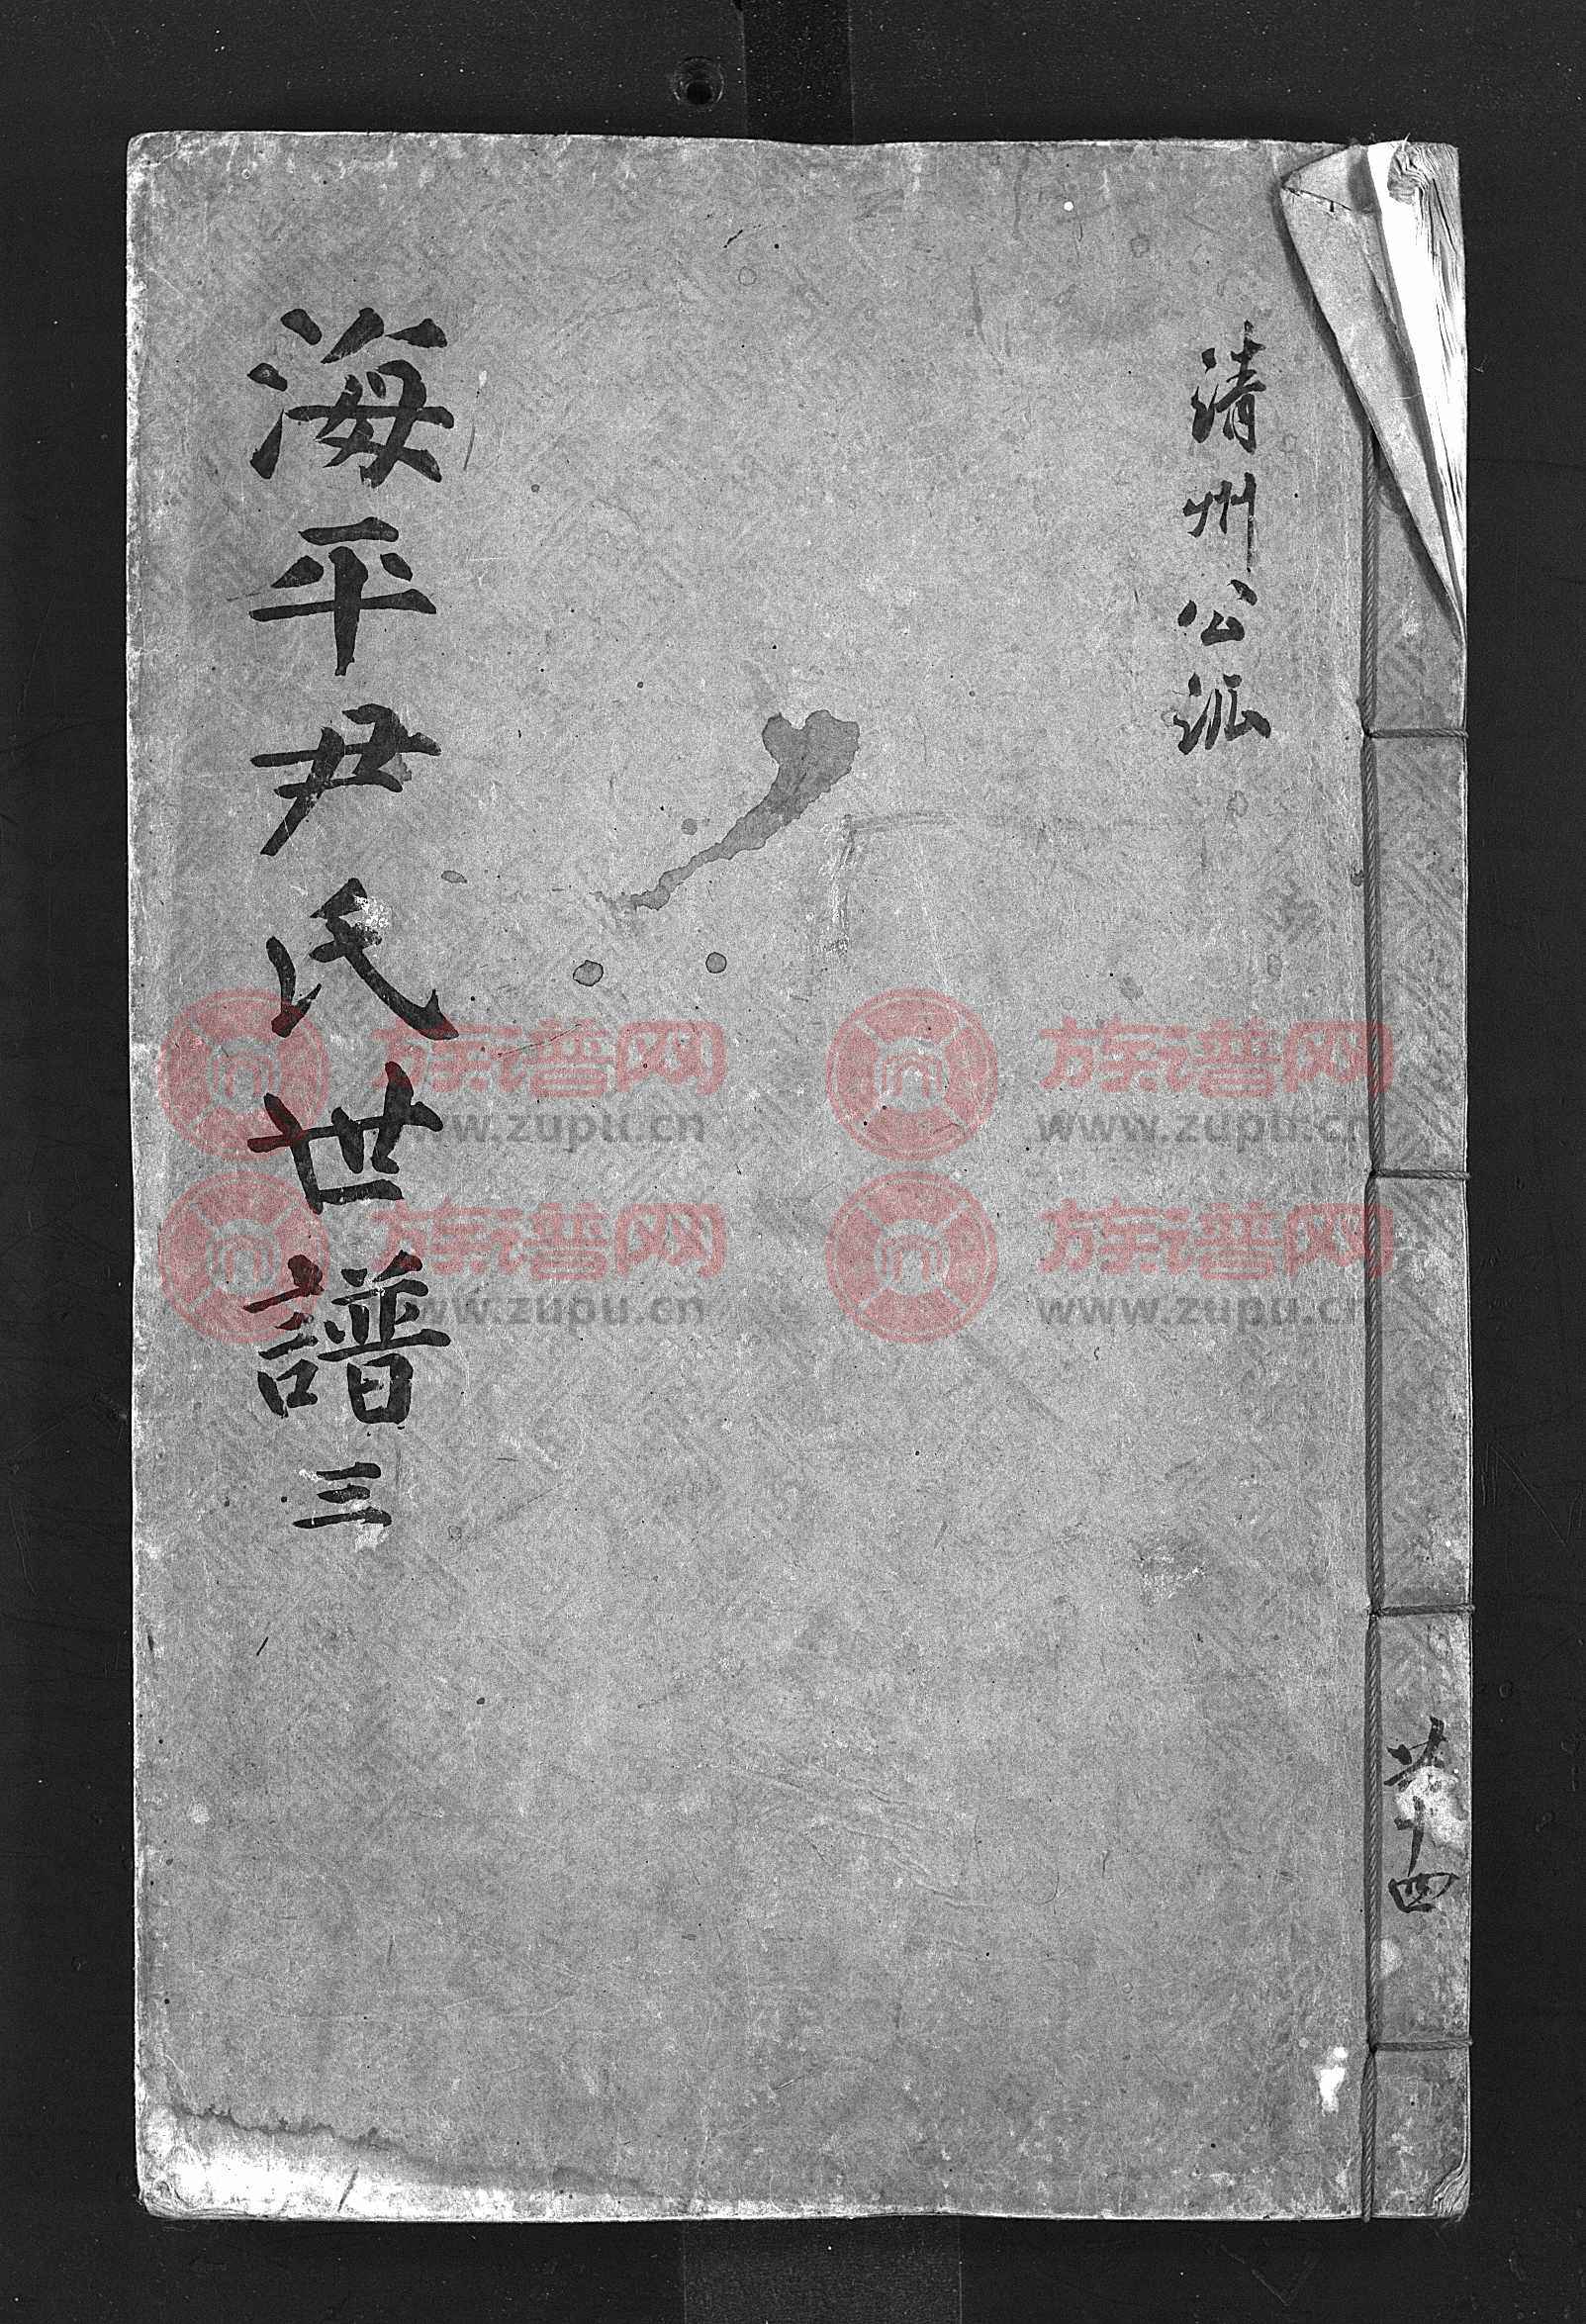 清州公派
海平尹氏世譜 三
共十四
族谱网
www.zupu.cn
族谱网
www.zupu.cn
族谱网
www.zupu.cn
族谱网
www.zupu.cn